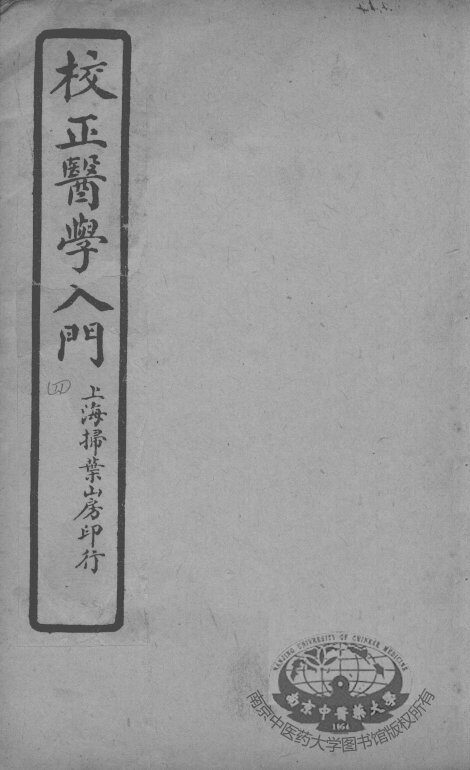 校正醫學入門
四
上海掃葉山房印行
NANJING UNIVERSITY OF CHINESE MEDICINE
南京中醫藥大學
1954
南京中医药大学图书馆版权所有